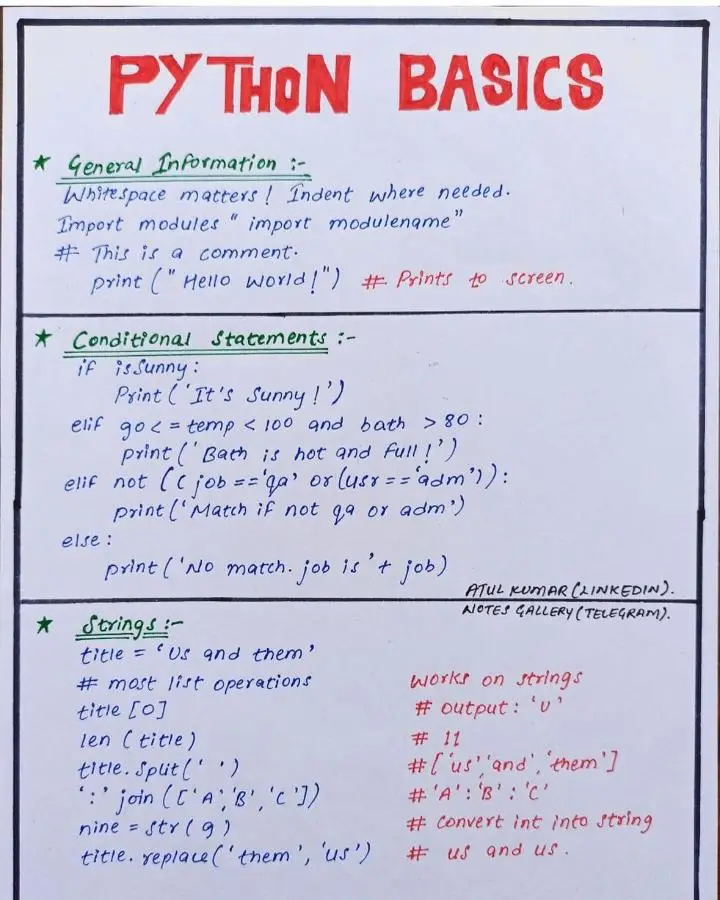 PYTHON BASICS
★ General Information :-
Whitespace matters! Indent where needed.
Import modules "import modulename"
# This is a comment.
print ("Hello World!") # Prints to screen.
★ Conditional Statements :-
if isSunny:
Print('It's Sunny!')
elif 90<=temp < 100 and bath > 80:
print('Bath is hot and full!')
elif not ((job=='qa' or(usr=='adm')):
print('Match if not qa or adm')
else:
print('No match. job is'+ job)
ATUL KUMAR(LINKEDIN).
NOTES GALLERY(TELEGRAM).
★ Strings :-
title = 'Us and them'
# most list operations works on strings
title [0] # output: 'U'
len (title) # 11
title.split(' ') #['us','and','them']
':' join (['A','B','C']) #'A':'B':'C'
nine = str(9) # convert int into string
title.replace('them', 'us') # us and us.